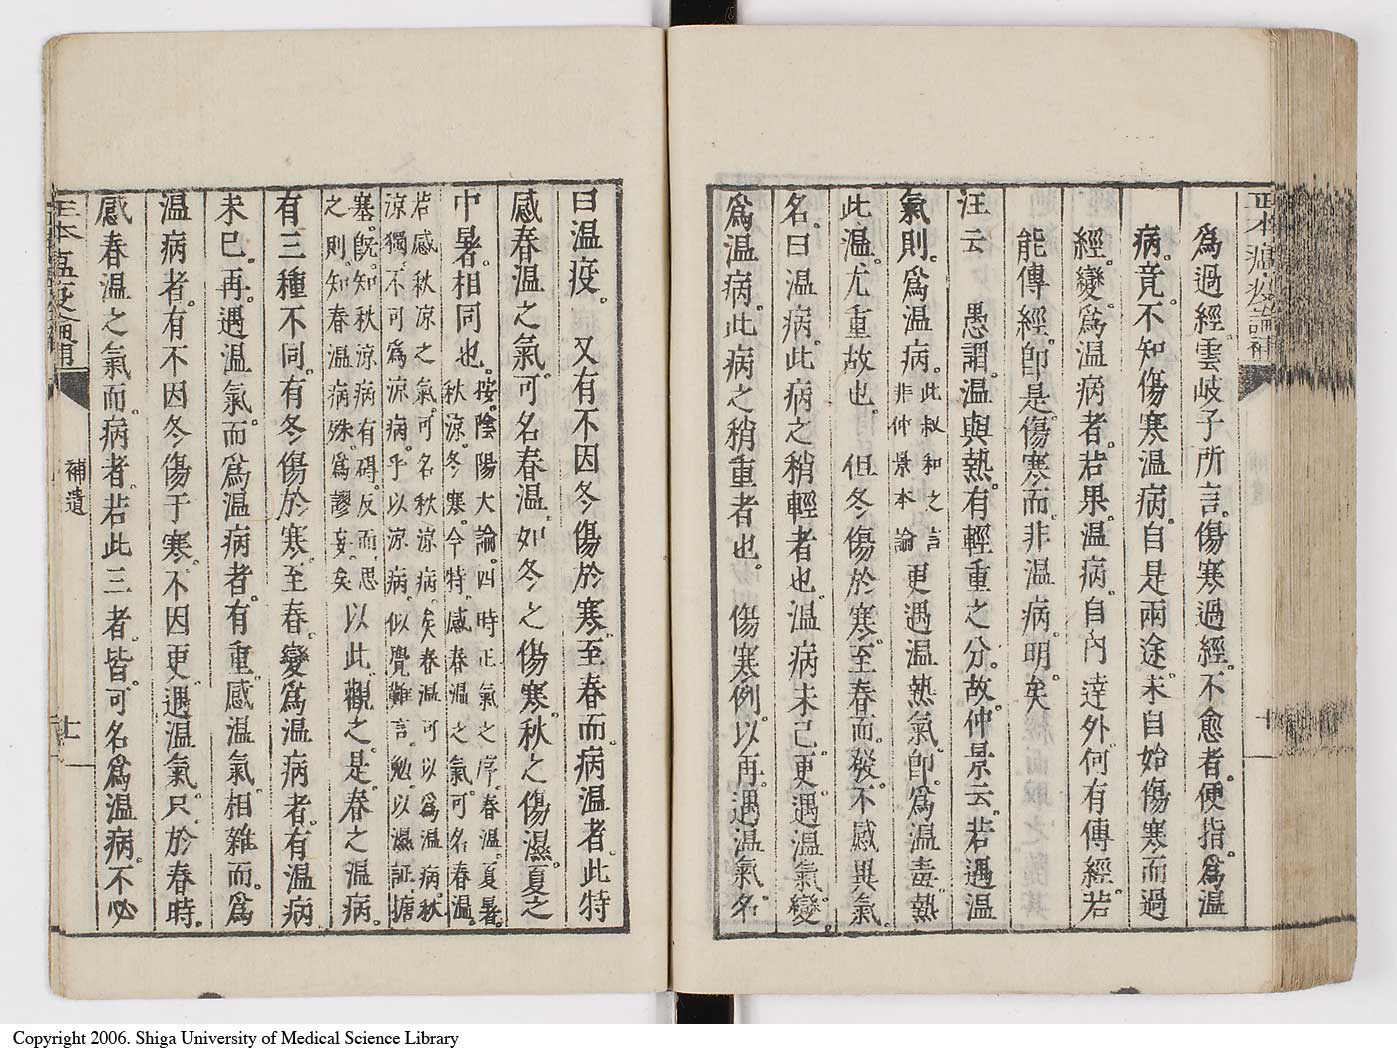 爲過經雲岐子所言傷寒過經不愈者便指爲温
病竟不知傷寒温病自是兩途未自始傷寒而過
經變爲温病者若果温病自内達外何有傳經若
能傳經即是傷寒而非温病明矣
汪云 愚謂温與熱有輕重之分故仲景云若遇温
氣則爲温病此叔和之言非仲景本論更遇温熱氣即爲温毒熱
此温尤重故也 但冬傷於寒至春而發不感異氣
名曰温病此病之稍輕者也温病未已更遇温氣變
爲温病此病之稍重者也 傷寒例以再遇温氣名
曰温疫 又有不因冬傷於寒至春而病温者此特
感春温之氣可名春温如冬之傷寒秋之傷濕夏之
中暑相同也按陰陽大論四時正氣之序春温夏暑
秋涼冬寒今特感春温之氣可名春温
若感秋涼之氣可名秋涼病矣春温可以爲温病秋
涼獨不可爲涼病乎以涼病似覺難言勉以濕証搪
塞既知秋涼病有碍反而思
之則知春温病殊爲謬妄矣以此觀之是春之温病
有三種不同有冬傷於寒至春變爲温病者有温病
未已再遇温氣而爲温病者有重感温氣相雜而爲
温病者有不因冬傷于寒不因更遇温氣只於春時
感春温之氣而病者若此三者皆可名爲温病不必
補遺
十
十一
Copyright 2006. Shiga University of Medical Science Library